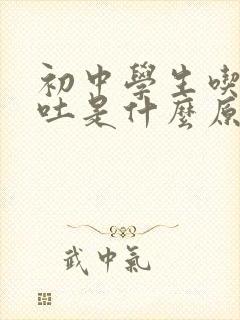 初中學生喫
吐是什麼原
武中氣